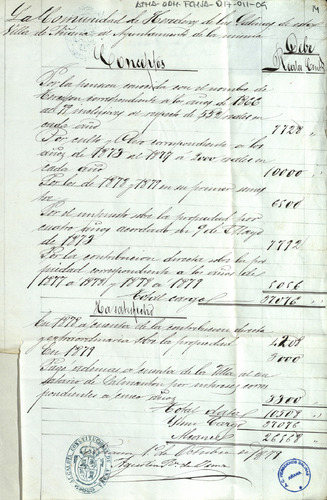 AHHA-ODH-FCHJA-017-011-09
La Comunidad de Herederos de las Salinas de esta
Villa de Añana al Ayuntamiento de la misma
Debe
Conceptos
Reales
Por la pension conocida con el nombre de
correspondiente a los años de 1866
al 79 inclusives al respecto de 552 reales en
cada año 7728
Por culto y Clero correspondiente a los
años de 1875 al 1879 a 2000 reales en
cada año 10000
Por los de 1878 y 1879 en su primer
por 6500
Por el impuesto sobre la propiedad por
cuatro años acordado en 9 de Mayo
de 1873 7792
Por la contribucion directa sobre la pro
piedad correspondiente a los años de
1877 a 1878 y 1878 a 1879 5056
Total cargo 37076
Ha satisfecho
En 1878 a cuenta de la contribucion directa
extraordinaria sobre la propiedad 4208
En 1879 3000
Pago ademas a cuenta de la Villa al
de por intereses corres
pondientes a cinco años 3300
Total Data 10508
Ymp. Cargo 37076
Alcance 26568
de Octubre de 1879
Agustin